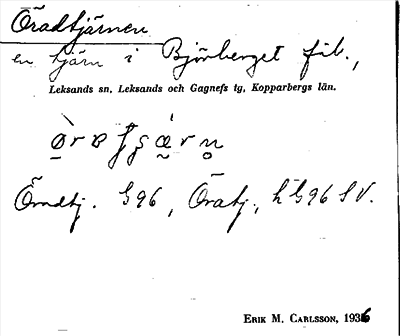 Öradtjärnen
en tjärn i Björberget fäb.,
Leksands sn, Leksands och Gagnefs tg, Kopparbergs län.
Öradtj. G96, Öratj., h G96 SV.
Erik M. Carlsson, 1936